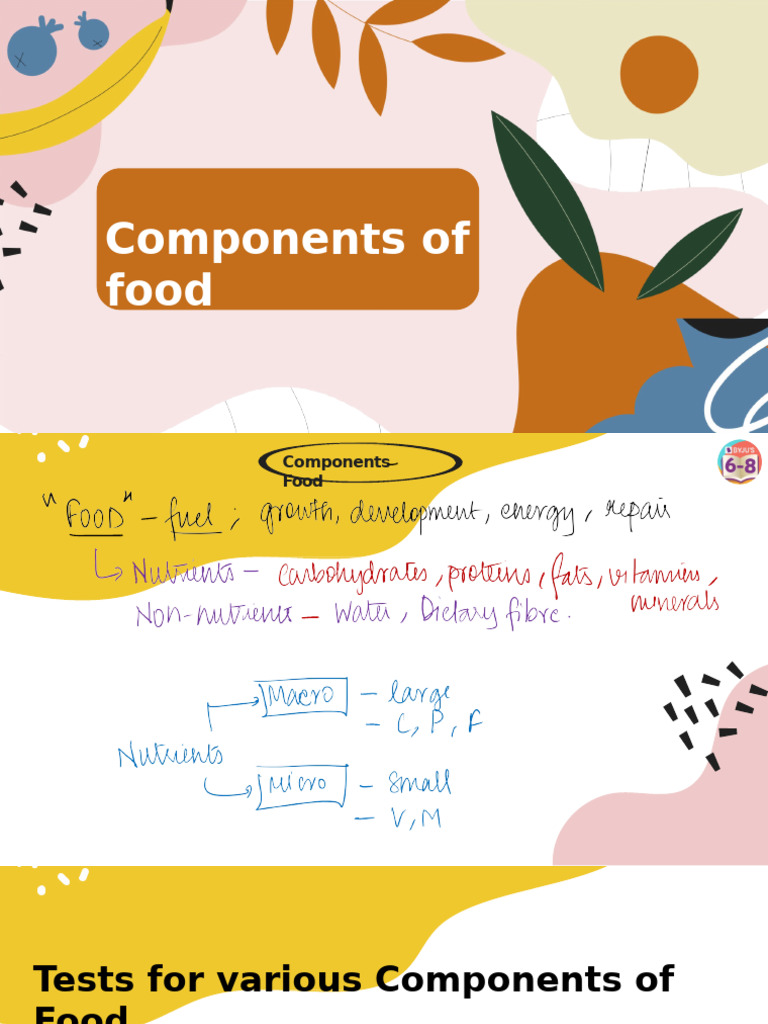 Components of
food
Components
Food
BYJU'S
6-8
"FOOD" – fuel ; growth, development, energy, repair
Nutrients – carbohydrates, proteins, fats, vitamins,
minerals
Non-nutrient – Water, Dietary fibre.
Macro – large
– C, P, F
Nutrients
Micro – small
– V, M
Tests for various Components of
Food